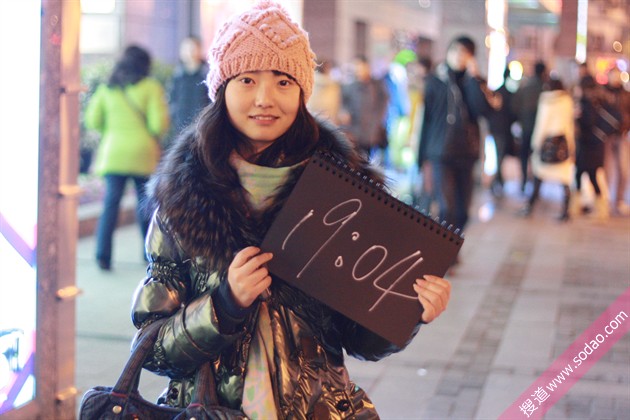 19:04
搜道 www.sodao.com